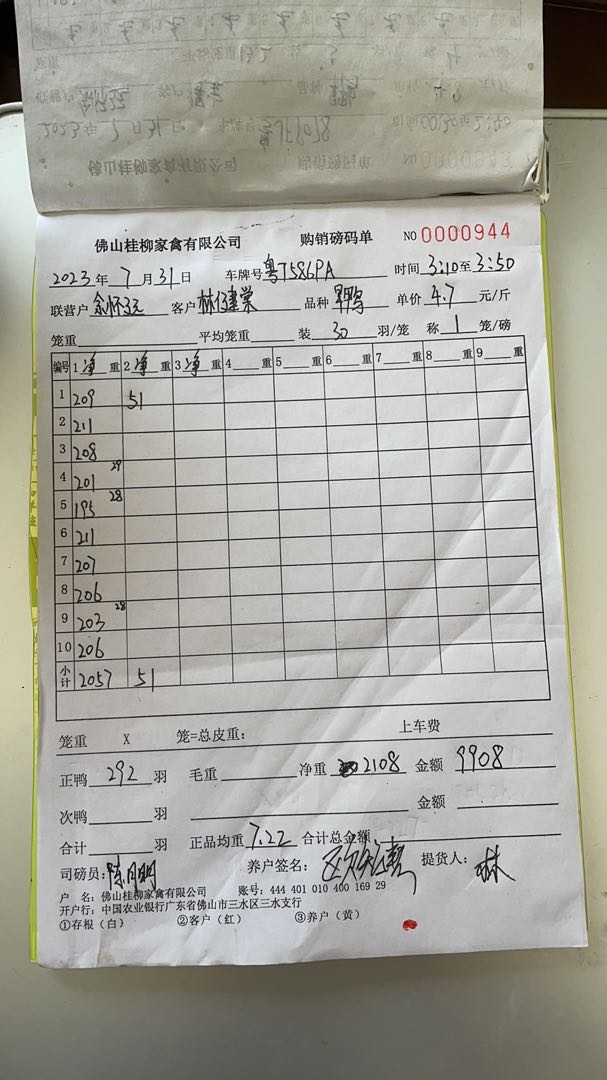 佛山桂柳家禽有限公司 购销磅码单 NO 0000943
佛山桂柳家禽有限公司 购销磅码单 NO 0000944
2023年7月31日 车牌号 粤T586PA 时间 3:10至3:50
联营户 客户 林健荣 品种 单价 4.7 元/斤
笼重 平均笼重 装 30 羽/笼 称 1 笼/磅
编号 1 净 重 2 净 重 3 净 重 4 重 5 重 6 重 7 重 8 重 9 重
1 209 51
2 211
3 208
4 201 29
5 195 28
6 211
7 207
8 206
9 203 28
10 206
小计 2057 51
笼重 X 笼=总皮重: 上车费
正鸭 292 羽 毛重 净重 2108 金额 9908
次鸭 羽 金额
合计 羽 正品均重 7.22 合计总金额
司磅员: 养户签名: 提货人: 林
户 名: 佛山桂柳家禽有限公司 账号: 444 401 010 400 169 29
开户行: 中国农业银行广东省佛山市三水区三水支行
①存根(白) ②客户(红) ③养户(黄)